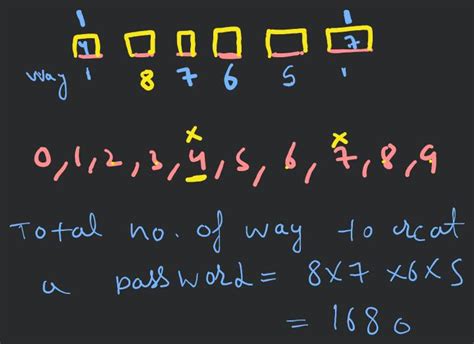 1 1
4 7
way 1 8 7 6 5 1
x x
0, 1, 2, 3, 4, 5, 6, 7, 8, 9
Total no. of way to rcat
a password = 8x7x6x5
= 1680